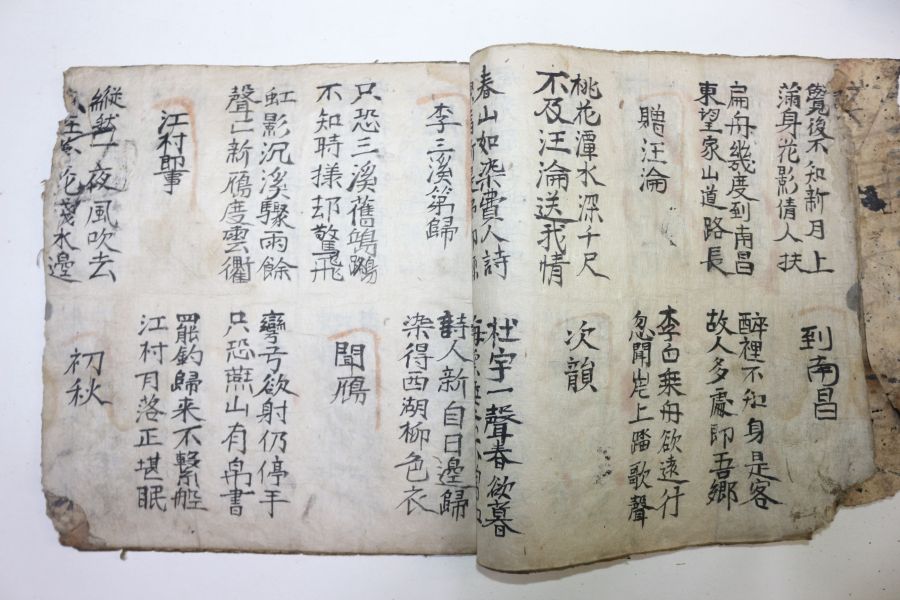 覺後不知新月上
滿身花影倩人扶
到南昌
扁舟幾度到南昌
東望家山道路長
醉裡不知身是客
故人多處即吾鄉
贈汪淪
李白乘舟欲遠行
忽聞岸上踏歌聲
桃花潭水深千尺
不及汪淪送我情
次韻
春山如染費人詩
杜宇一聲春欲暮
李三溪第歸
詩人新自日邊歸
染得西湖柳色衣
只恐三溪舊鷗
不知時樣却驚飛
聞鴈
虹影沉溪驟雨餘
聲亡新鴈度雲衢
彎弓欲射仍停手
只恐燕山有帛書
江村即事
罷釣歸來不繫船
江村月落正堪眠
縱然一夜風吹去
花淺水邊
初秋